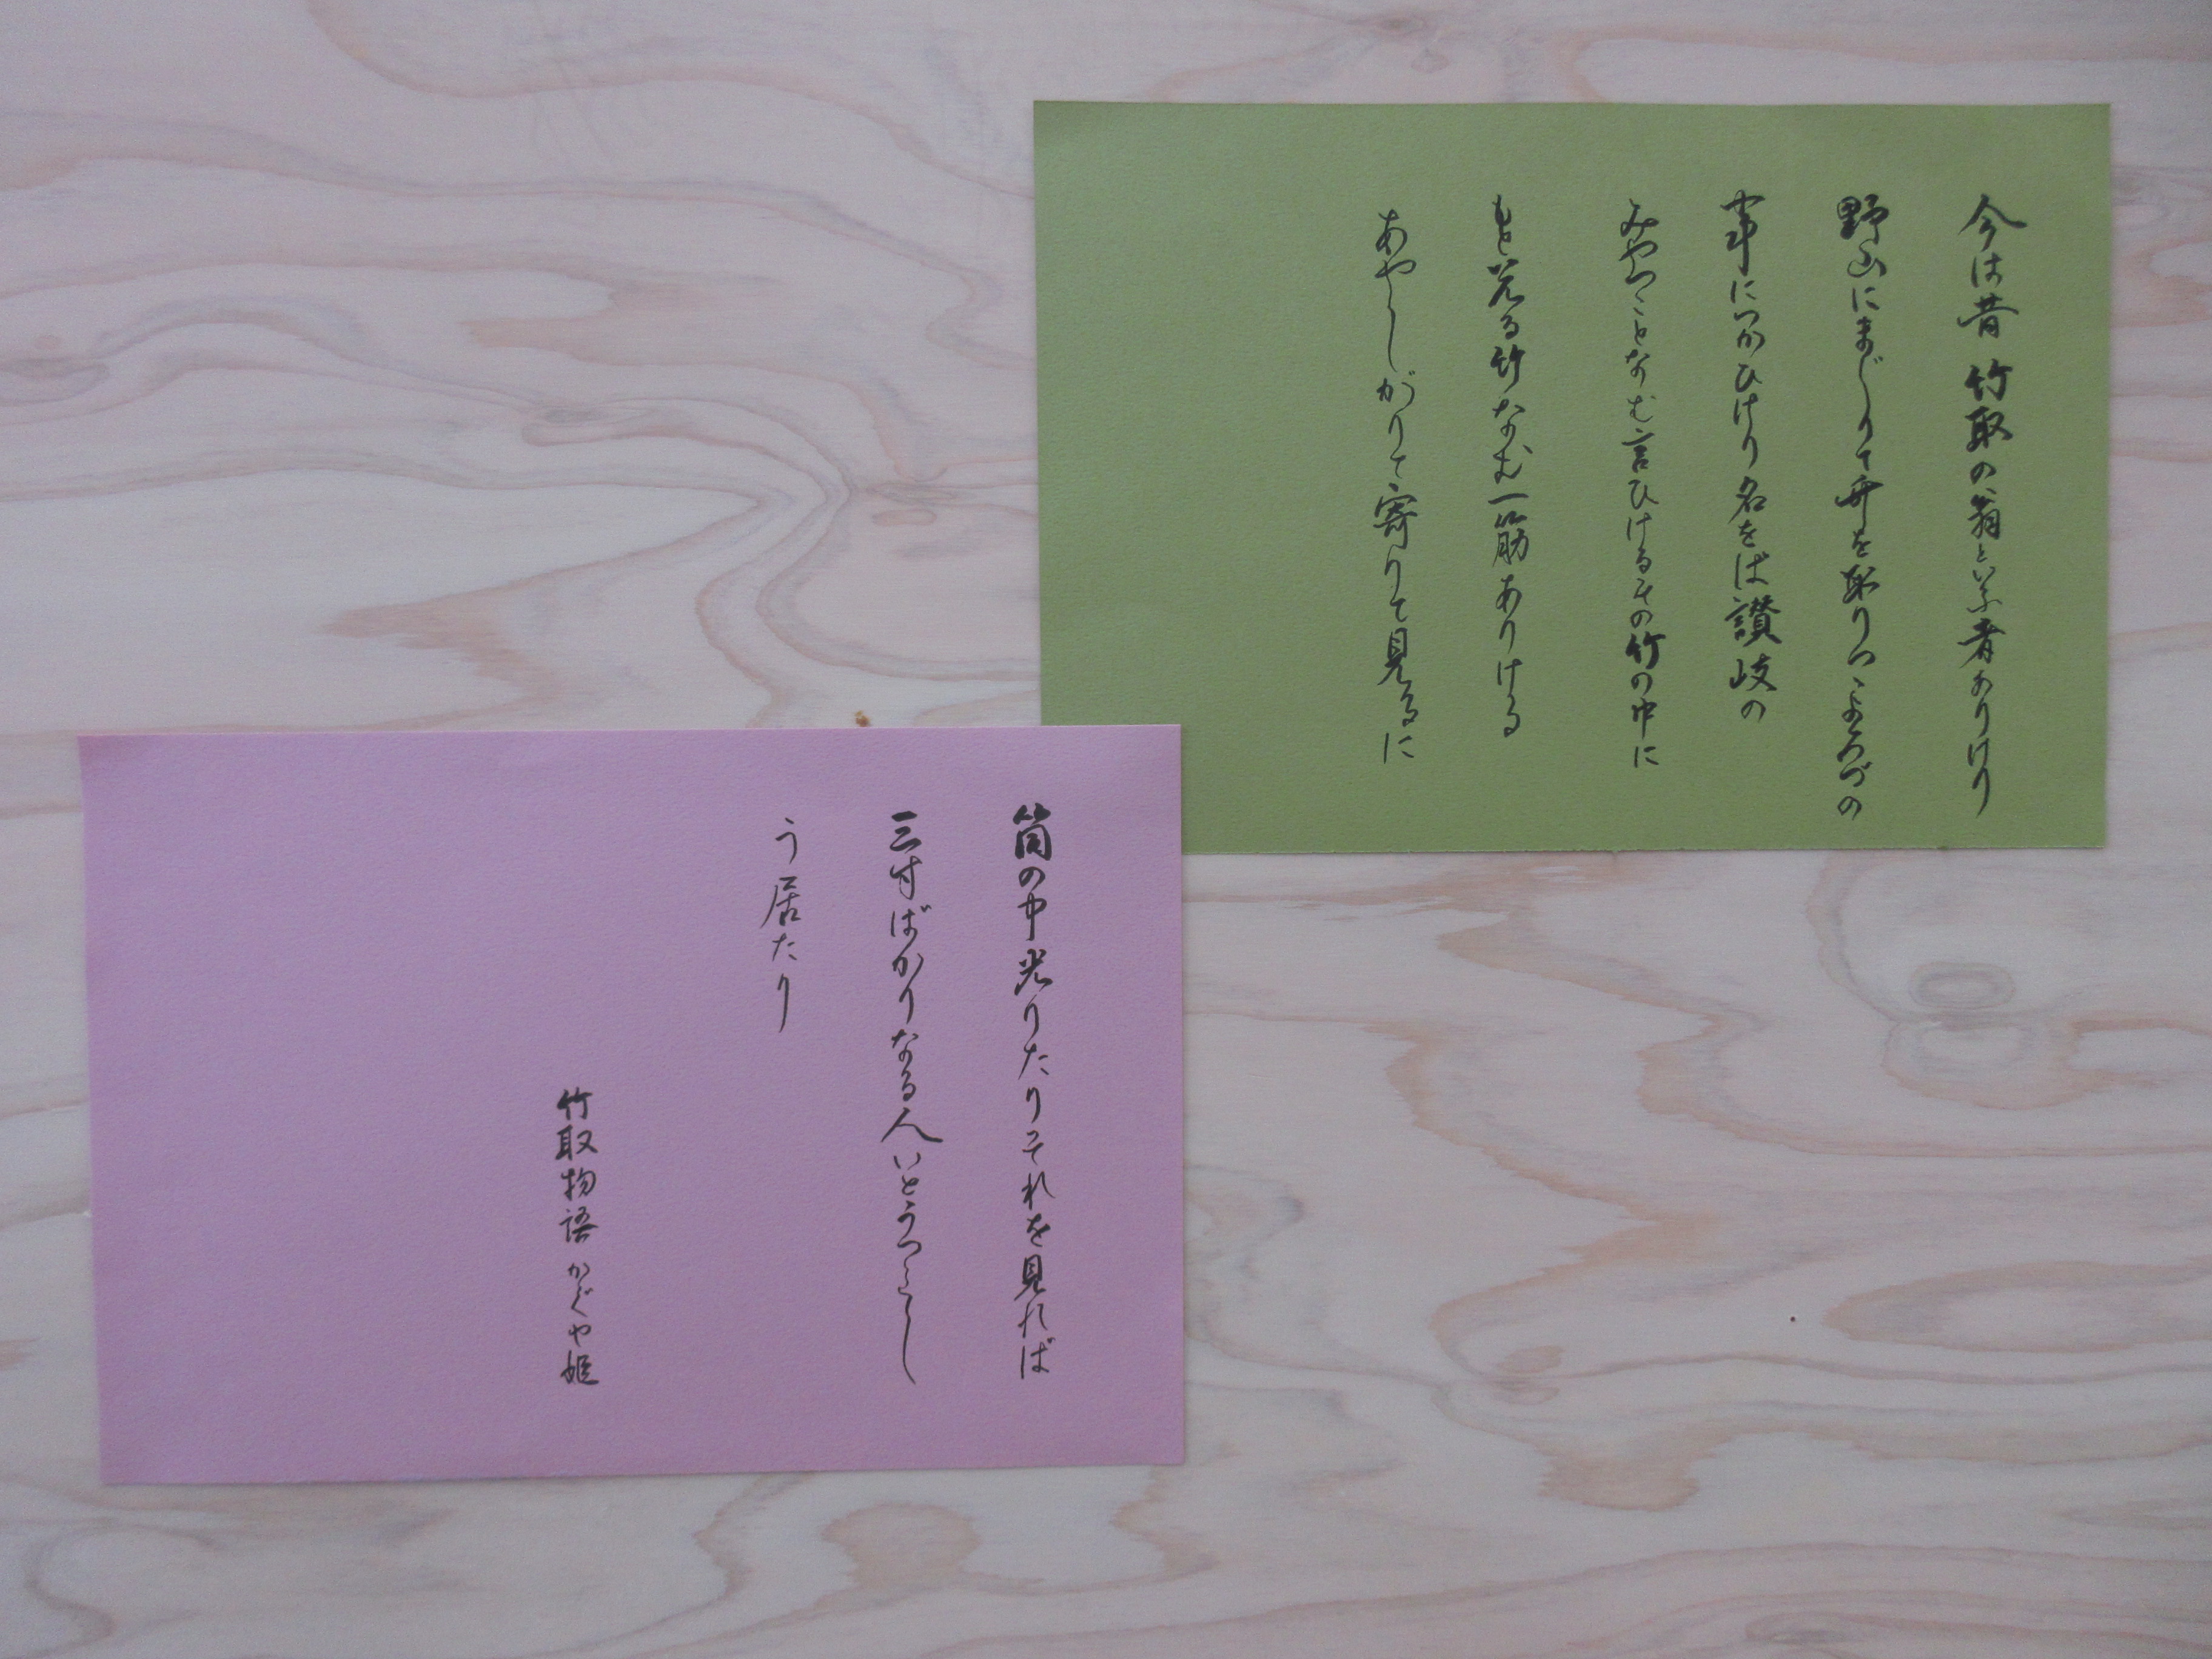 今は昔竹取の翁といふ者ありけり
野山にまじりて竹を取りつゝよろづの
事につかひけり名をば讃岐の
みやつことなむ言ひけるその竹の中に
もと光る竹なむ一筋ありける
あやしがりて寄りて見るに
筒の中光りたりそれを見れば
三寸ばかりなる人いとうつくし
う居たり
竹取物語 かぐや姫